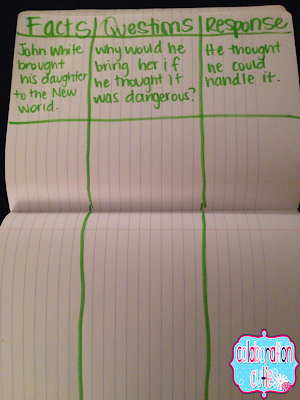 Facts
Questions
Response
John White
brought
his daughter
to the New
World.
why would he
bring her if
he thought it
was dangerous?
He thought
he could
handle it.
collaboration
cuties